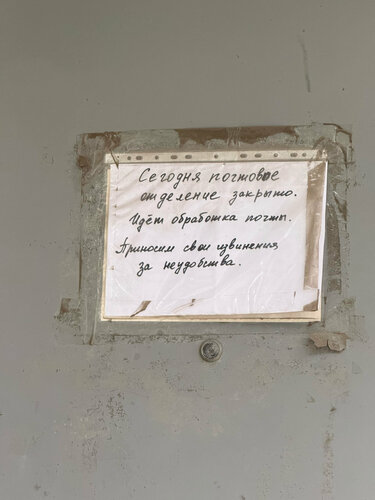 Сегодня почтовое
отделение закрыто.
Идёт обработка почты.
Приносим свои извинения
за неудобства.